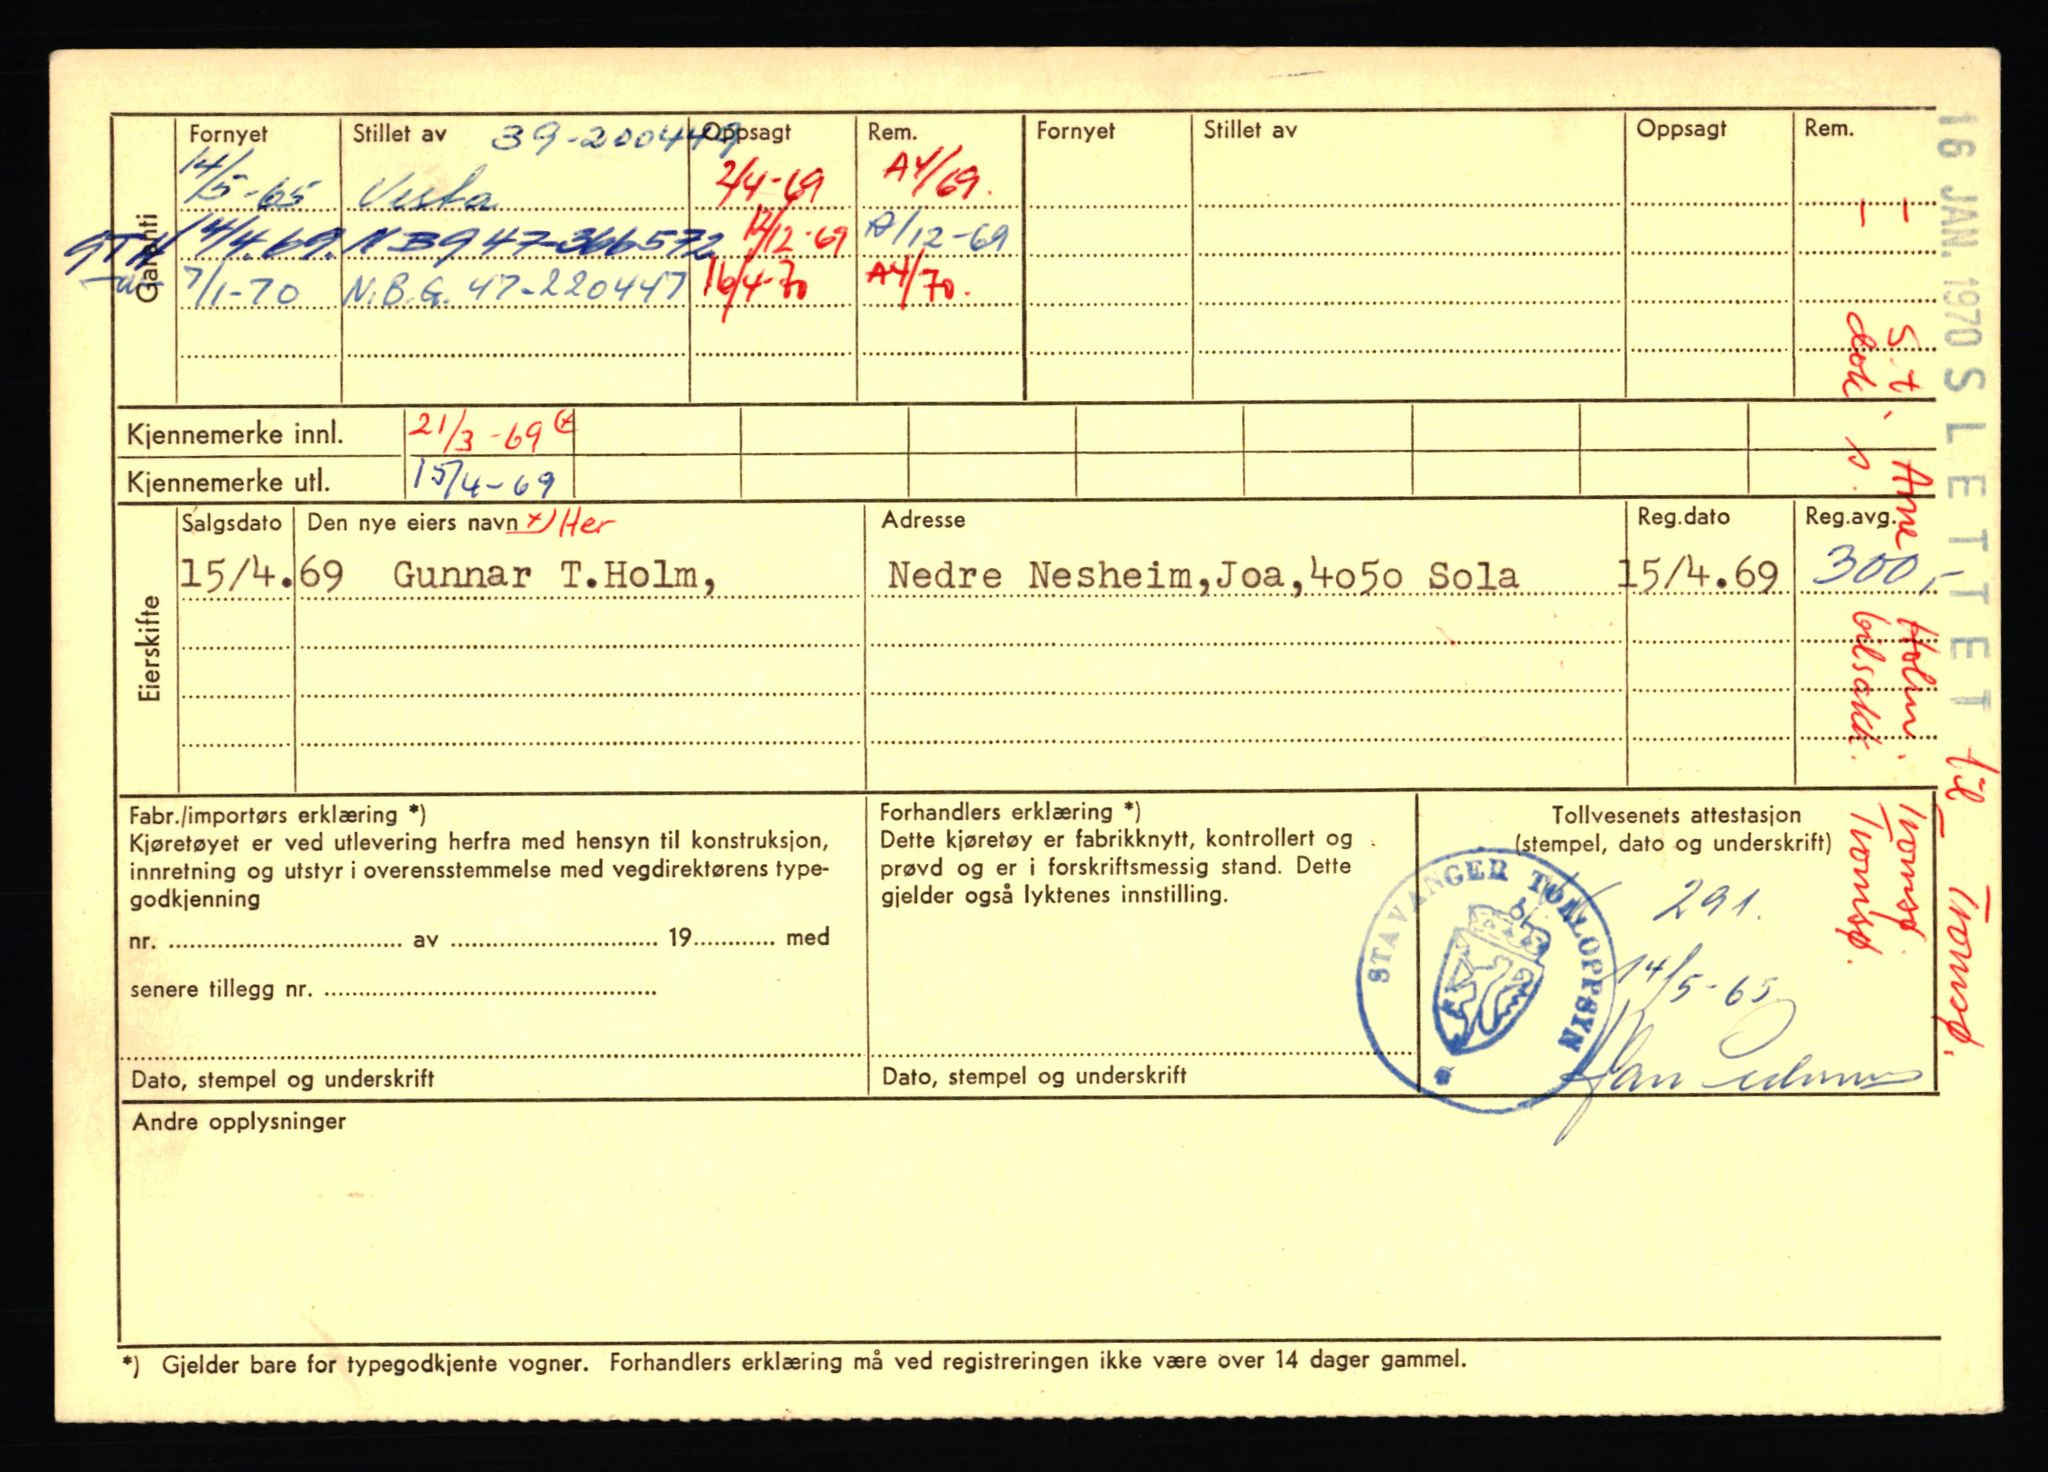 Garanti
Fornyet Stillet av 39-200449 Oppsagt Rem. Fornyet Stillet av Oppsagt Rem.
14/5-65 Vesta 2/4-69 A4/69.
14/4.69. NBG 47-366572 12/12-69 A/12-69
7/1-70 N.B.G. 47-220447 16/4-70 A4/70.
Kjennemerke innl. 21/3-69 x)
Kjennemerke utl. 15/4-69
Eierskifte
Salgsdato Den nye eiers navn x) Her Adresse Reg.dato Reg.avg.
15/4.69 Gunnar T.Holm, Nedre Nesheim,Joa,4050 Sola 15/4.69 300,-
Fabr./importørs erklæring *)
Kjøretøyet er ved utlevering herfra med hensyn til konstruksjon,
innretning og utstyr i overensstemmelse med vegdirektørens type-
godkjenning
nr. av 19 med
senere tillegg nr.
Dato, stempel og underskrift
Forhandlers erklæring *)
Dette kjøretøy er fabrikknytt, kontrollert og
prøvd og er i forskriftsmessig stand. Dette
gjelder også lyktenes innstilling.
Dato, stempel og underskrift
Tollvesenets attestasjon
(stempel, dato og underskrift)
STAVANGER TOLLOPPSYN
291.
14/5-65
Andre opplysninger
*) Gjelder bare for typegodkjente vogner. Forhandlers erklæring må ved registreringen ikke være over 14 dager gammel.
16 JAN. 1970 SLETTET til Tromsø.
- S.t. Arne Holm. Tromsø.
- dok. s. bilsakk. Tromsø.